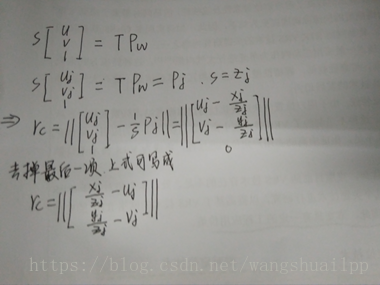 s[u v 1] = T Pw
s[uj vj 1] = T Pw = Pj . s = zj
⇒ rc = ||[uj vj 1] - 1/s Pj|| = ||[uj - xj/zj vj - yj/zj 0]||
去掉最后一项,上式可写成
rc = ||[xj/zj - uj yj/zj - vj]||
https://blog.csdn.net/wangshuailpp